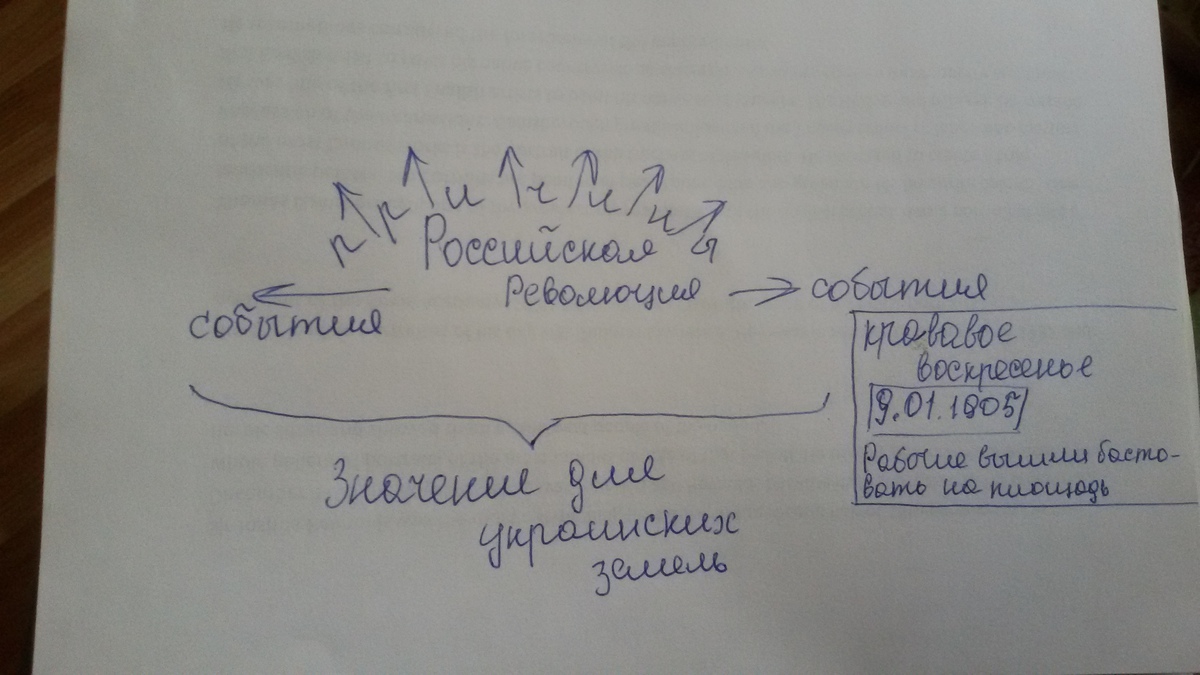 п р и ч и н ы
Российская
Революция
события
события
кровавое
воскресенье
9.01.1905
Рабочие вышли басто-
вать на площадь
Значение для
украинских
земель